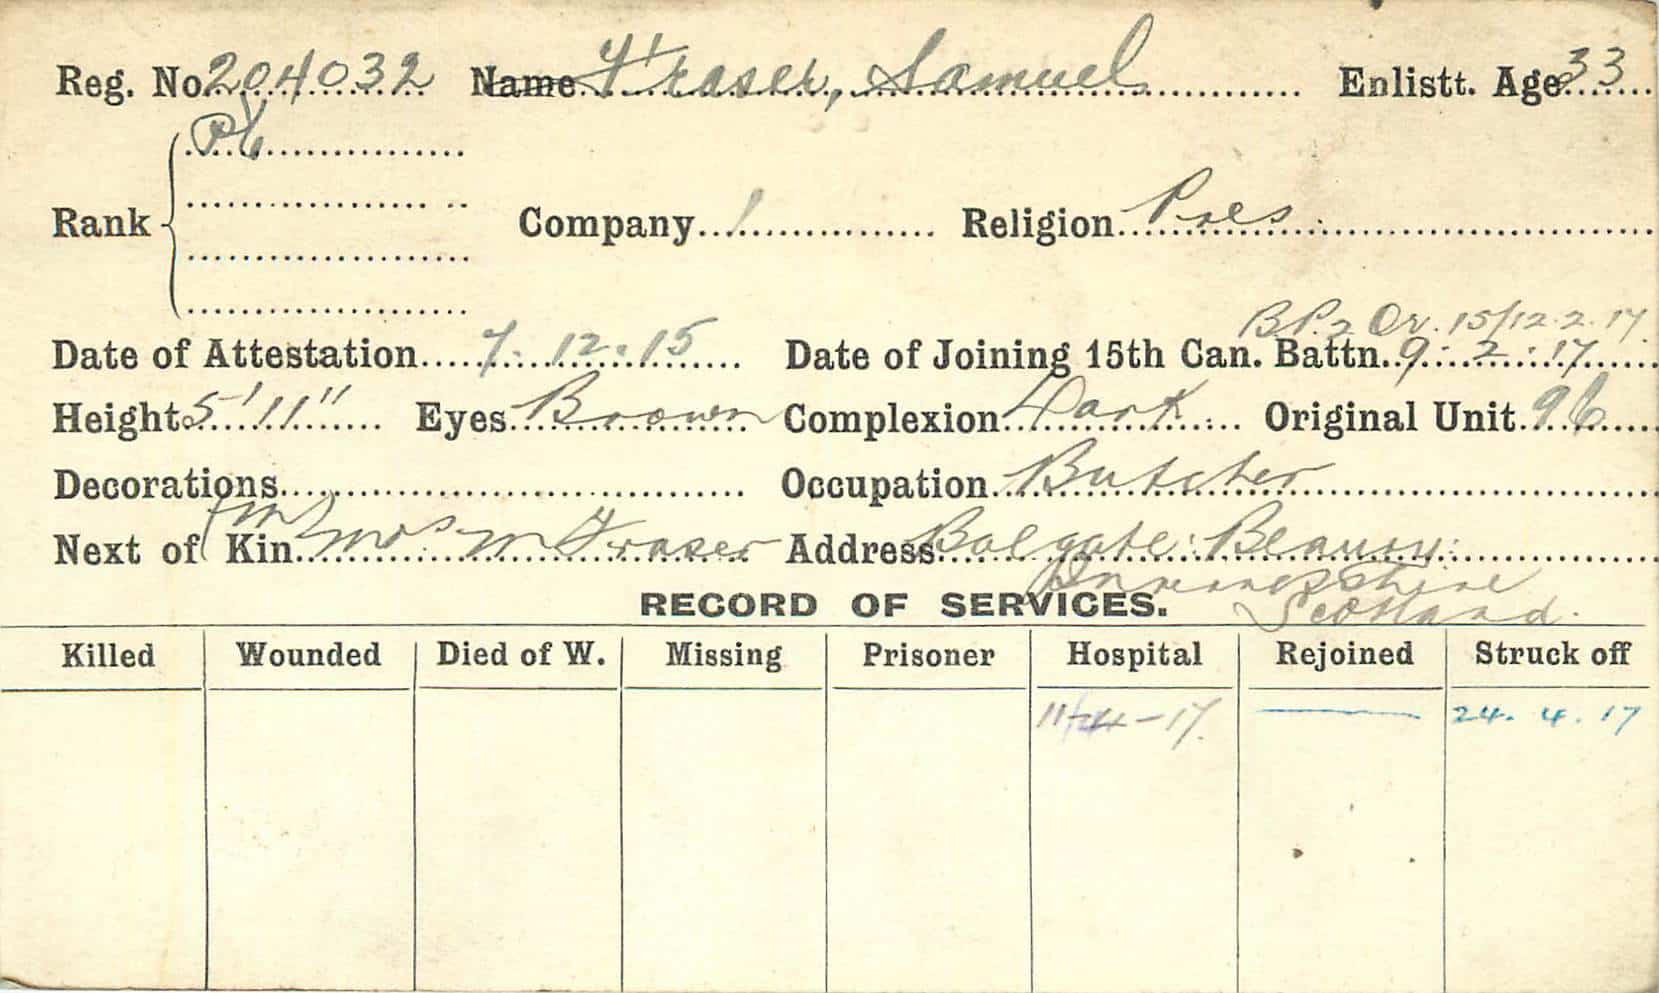 Reg. No. 204032 Name Fraser, Samuel Enlistt. Age 33
Pte
Rank Company 1 Religion Pres.
B.P.2 Or. 15/12.2.17
Date of Attestation 7.12.15 Date of Joining 15th Can. Battn. 9.2.17
Height 5'11" Eyes Brown Complexion Dark Original Unit 96
Decorations Occupation Butcher
(m)
Next of Kin Mrs M Fraser Address Balgate: Beauly:
Invernesshire
RECORD OF SERVICES. Scotland.
Killed Wounded Died of W. Missing Prisoner Hospital Rejoined Struck off
-17 — 24.4.17